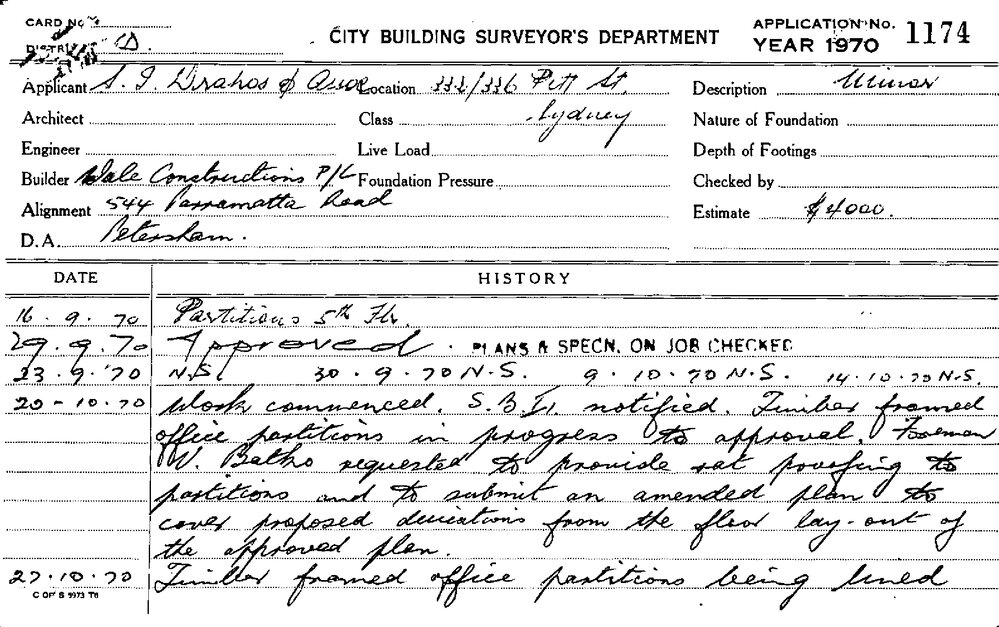 CARD No.
DISTRICT CD.
CITY BUILDING SURVEYOR'S DEPARTMENT
APPLICATION No. 1174
YEAR 1970
Applicant S. J. & Assoc Location 332/336 Pitt St.
Description Minor
Architect Class Sydney
Nature of Foundation
Engineer Live Load
Depth of Footings
Builder Dale Constructions P/L Foundation Pressure
Checked by
Alignment 544 Parramatta Road
Estimate $4000.
D.A. Petersham.
DATE HISTORY
16.9.70 Partitions 5th Flr.
29.9.70 Approved. PLANS & SPECN. ON JOB CHECKED
23.9.70 N.S. 30.9.70 N.S. 9.10.70 N.S. 14.10.70 N.S.
20-10.70 Work commenced. S.B.I. notified. Timber framed
office partitions in progress to approval. Foreman
V. Batho requested to provide rat proofing to
partitions and to submit an amended plan to
cover proposed deviations from the floor lay-out of
the approved plan.
27.10.70 Timber framed office partitions being lined
C OF S 9973 T6